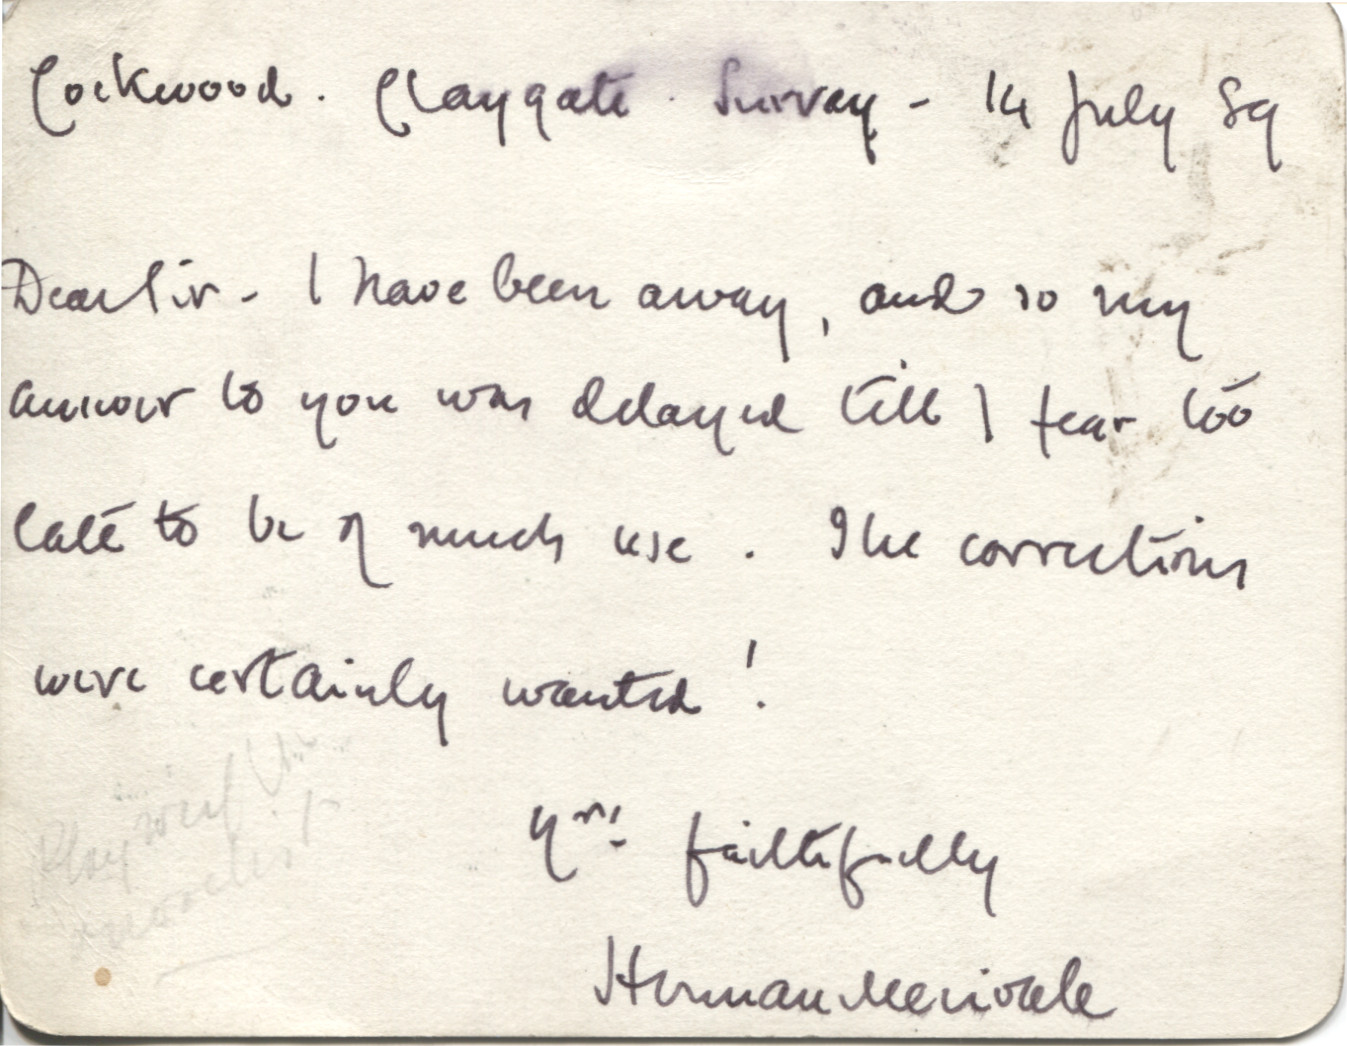 Cockwood. Claygate. Surrey - 14 July 89
Dear Sir - I have been away, and so my
answer to you was delayed till I fear too
late to be of much use. The corrections
were certainly wanted!
Yrs. faithfully
Herman Merivale
Playwright
novelist